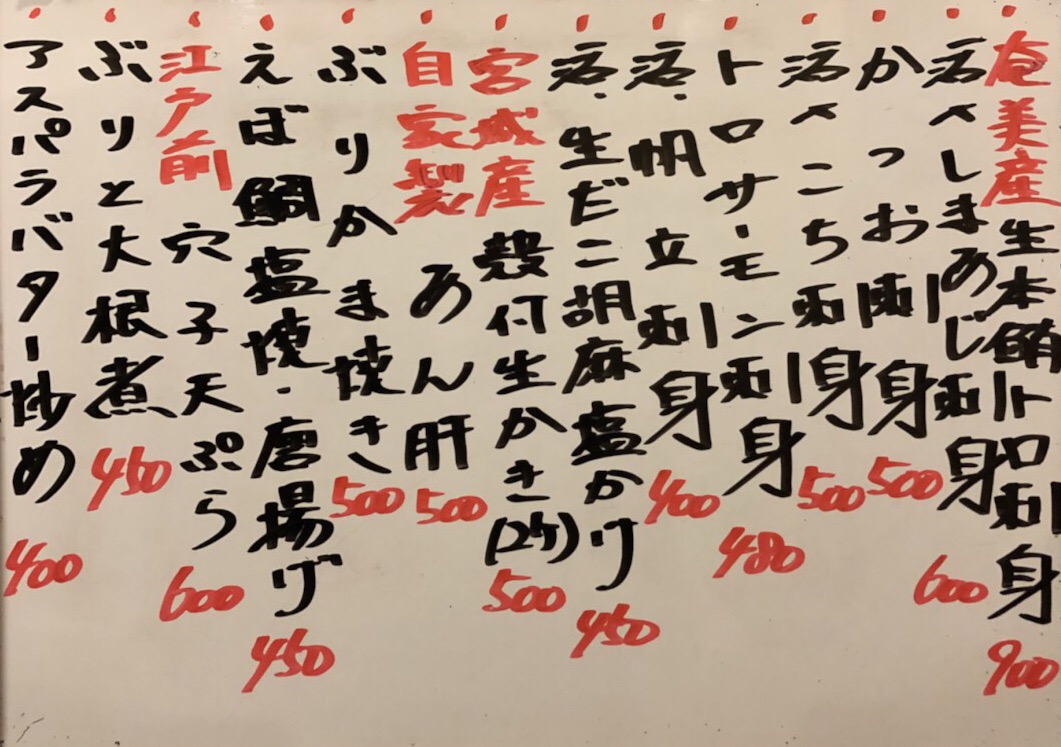 奄美産生本鮪トロ刺身 900
活〆しまあじ刺身 600
かつお刺身 500
活〆こち刺身 500
トロサーモン刺身 480
活帆立刺身 400
活生だこ胡麻塩かけ 450
宮城産殻付生かき(2ケ) 500
自家製あん肝 500
ぶりかま焼き 500
えぼ鯛塩焼・唐揚げ 450
江戸前穴子天ぷら 600
ぶりと大根煮 450
アスパラバター炒め 400